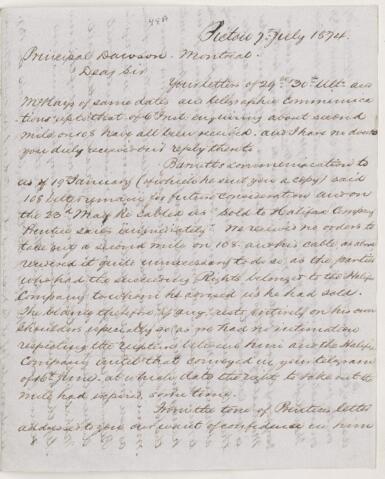 Pictou 7th July 1874.
Principal Dawson. Montreal.
Dear Sir
Your letters of 29th & 30th Ulto. and
McKay's of same date, and telegraphic communica
tions up to that of 6 Inst enquiring about second
mile on 108 have all been received. and I have no doubt
you duly received our reply thereto.
communication to
us of 19 January (of which he sent you a copy) said
108 better remain for future consideration and on
the 20th May he cabled us "sold to Halifax Company
immediately". We received no orders to
take out a second mile on 108. and his cable as above
rendered it quite unnecessary to do so, as the parties
who had the Rights belonged to the Halifax
Company to whom he advised us he had sold.
The blame therefore if any, rests entirely on his own
shoulders especially so, as we had no intimation
respecting the between him and the Halifax
Company until that conveyed in your telegram
of June, at which date the right to take out the
mile had expired some time.
From the tone of letter
addressed to you our want of confidence in him